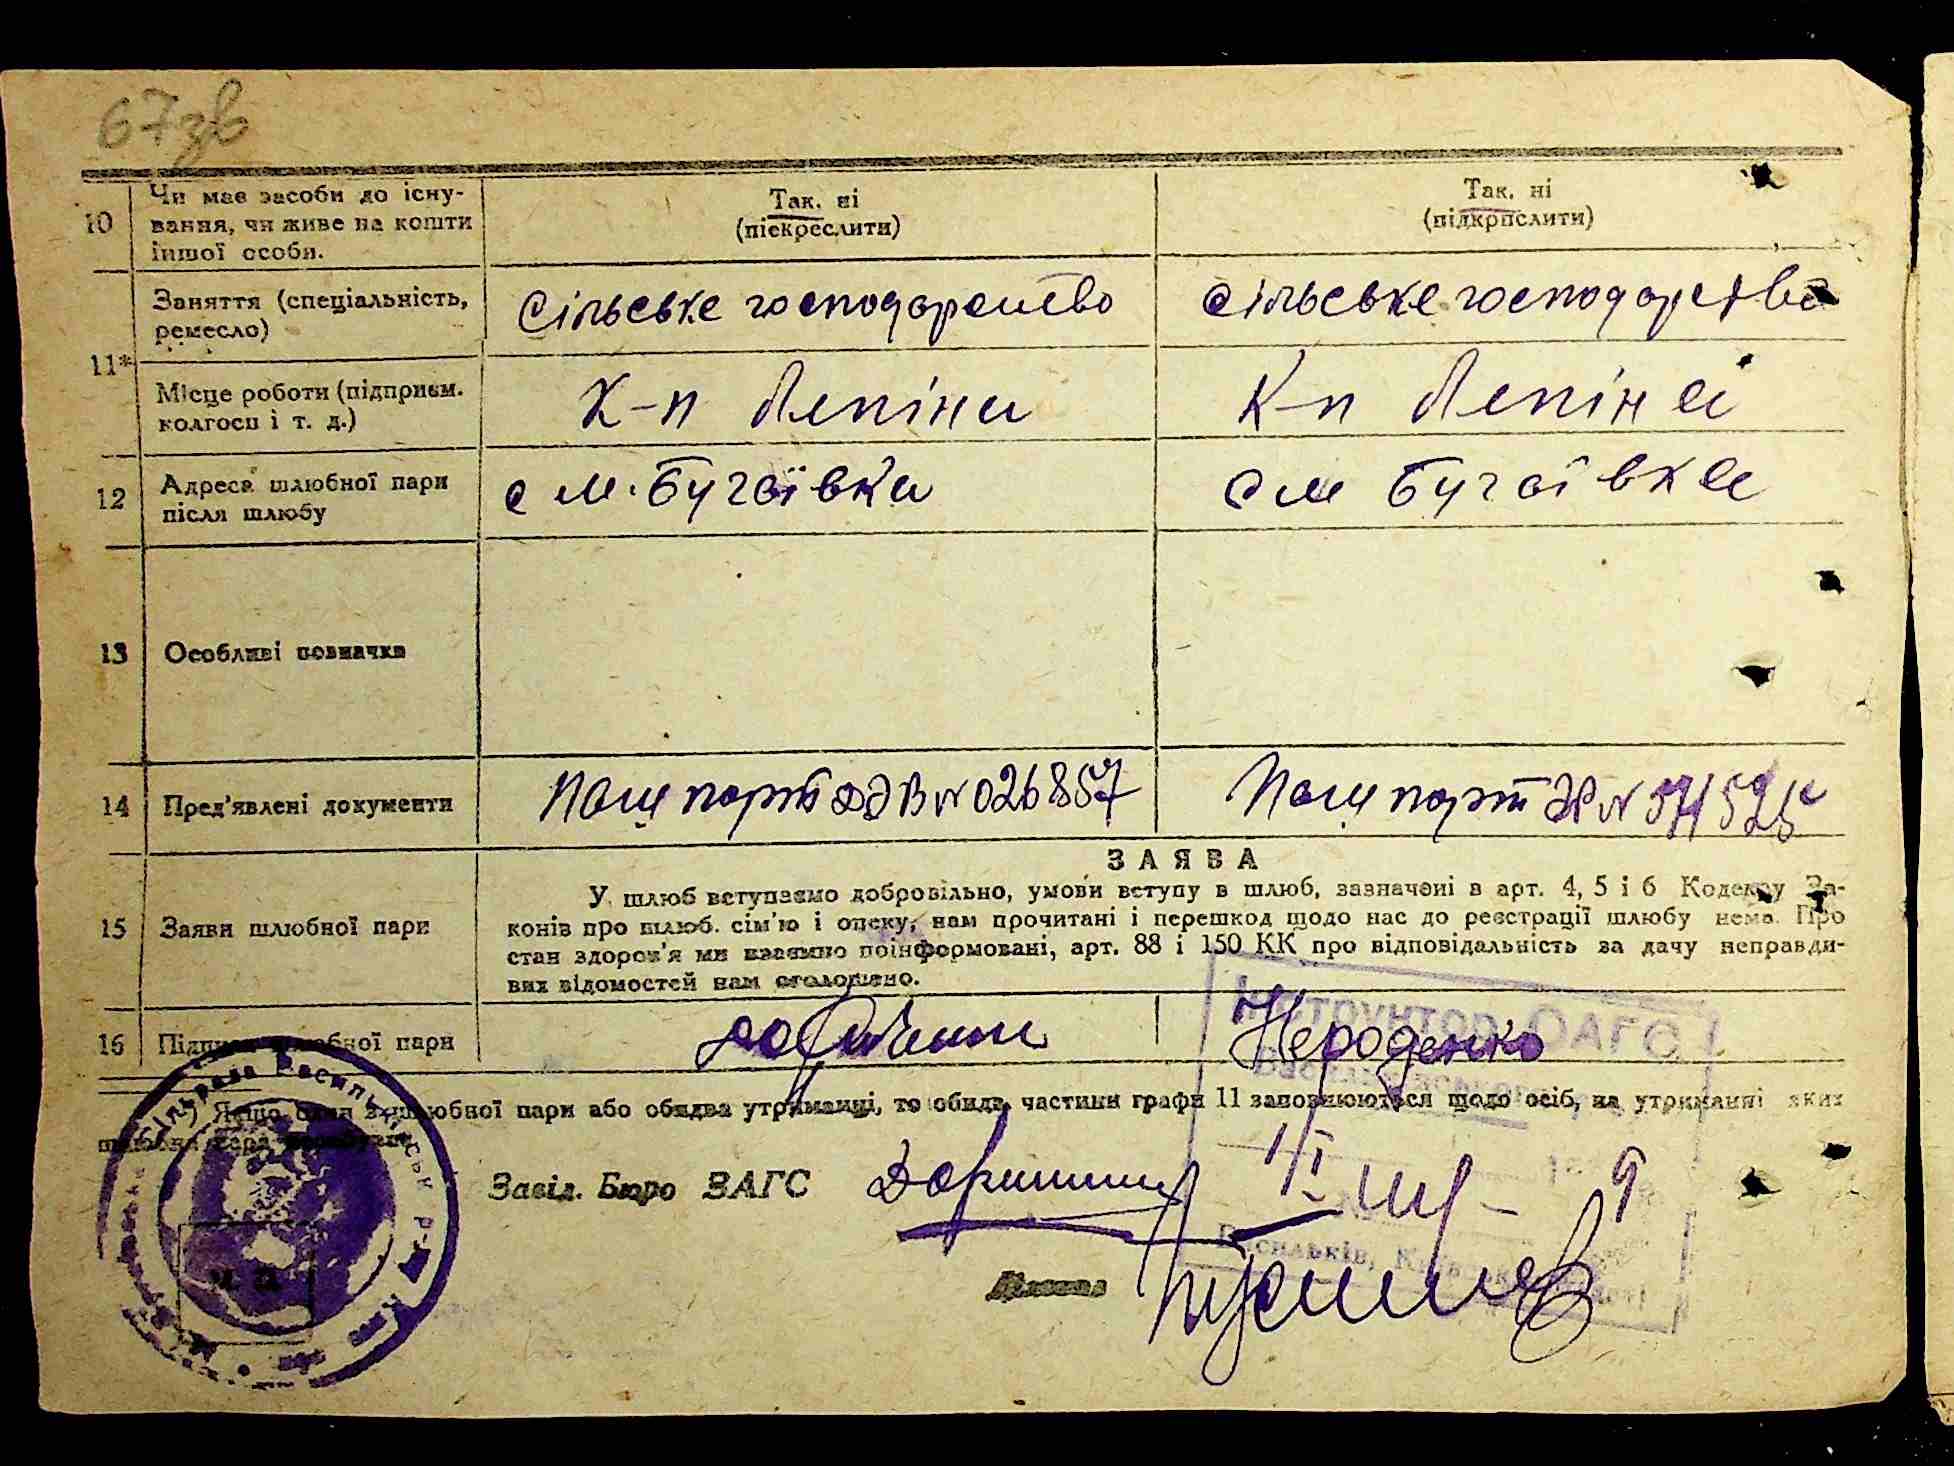 67зв
10
Чи має засоби до існу-
вання, чи живе на кошти
іншої особи.
Так, ні
(піекреслити)
Так, ні
(підкрислити)
11*
Заняття (спеціальність,
ремесло)
Сільське господарство
Сільське господарство
Місце роботи (підприєм.
колгосп і т. д.)
К-п Леніна
К-п Леніна
12
Адреса шлюбної пари
після шлюбу
с м. Бугаївка
с м Бугаївка
13
Особливі позначки
14
Пред'явлені документи
Пашпорт № 026857
Пашпорт №
15
Заяви шлюбної пари
ЗАЯВА
У шлюб вступаємо добровільно, умови вступу в шлюб, зазначені в арт. 4, 5 і 6 Кодексу За-
конів про шлюб. сім'ю і опеку, нам прочитані і перешкод щодо нас до реєстрації шлюбу нема. Про
стан здоров'я ми взаємно поінформовані, арт. 88 і 150 КК про відповідальність за дачу неправди-
вих відомостей нам оголошено.
16
Підписи шлюбної пари
Нероденко
Інструктор ОАГС
Васильківського
*) Якщо один з шлюбної пари або обидва утриманці, то обидві частини графи 11 заповнюються щодо осіб, на утриманні яких
шлюбна пара перебуває.
Завід. Бюро ЗАГС
Васильків, Київської області